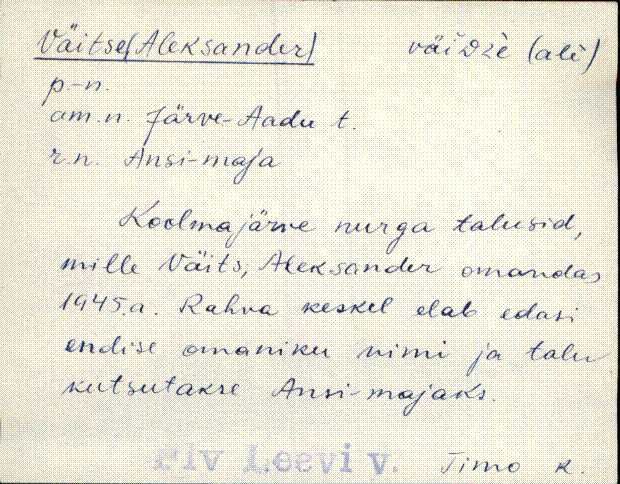 Väitse (Aleksander) väiDže (ali)
p.-n.
am.n. Järve-Aadu t.
r.n. Ansi-maja
Koolmajärve nurga talusid,
mille Väits, Aleksander omandas
1945.a. Rahva keskel elab edasi
endise omaniku nimi ja talu
kutsutakse Ansi-majaks.
Plv Leevi v. Timo k.